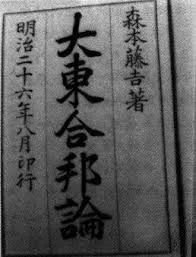 森本藤吉著
大東合邦論
明治二十六年八月印行